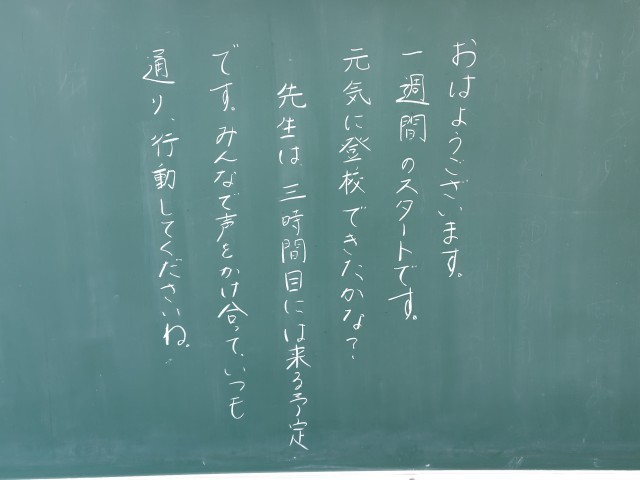 おはようございます。
一週間のスタートです。
元気に登校できたかな？
先生は、三時間目には来る予定
です。みんなで声をかけ合って、いつも
通り、行動してくださいね。